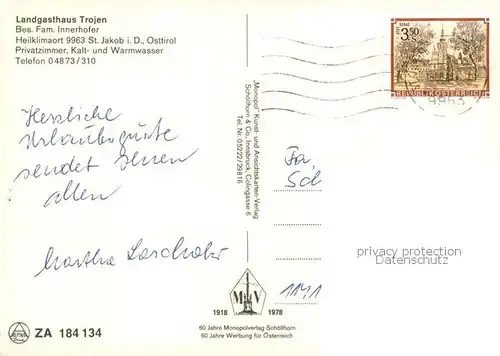 Landgasthaus Trojen
Bes. Fam. Innerhofer
Heilklimaort 9963 St. Jakob i. D., Osttirol
Privatzimmer, Kalt- und Warmwasser
Telefon 04873/310
3.50
REPUBLIK ÖSTERREICH
9963
Herzliche
Urlaubsgrüße
sendet Ihnen
allen
Martha
"Monopol" Kunst- und Ansichtskarten-Verlag
Schöllhorn & Co., Innsbruck, Colingasse 6
Tel. Nr. 05222/29816
Fa.
Sch
1141
privacy protection
Datenschutz
M V
1918 1978
60 Jahre Monopolverlag Schöllhorn
60 Jahre Werbung für Österreich
ZA 184 134